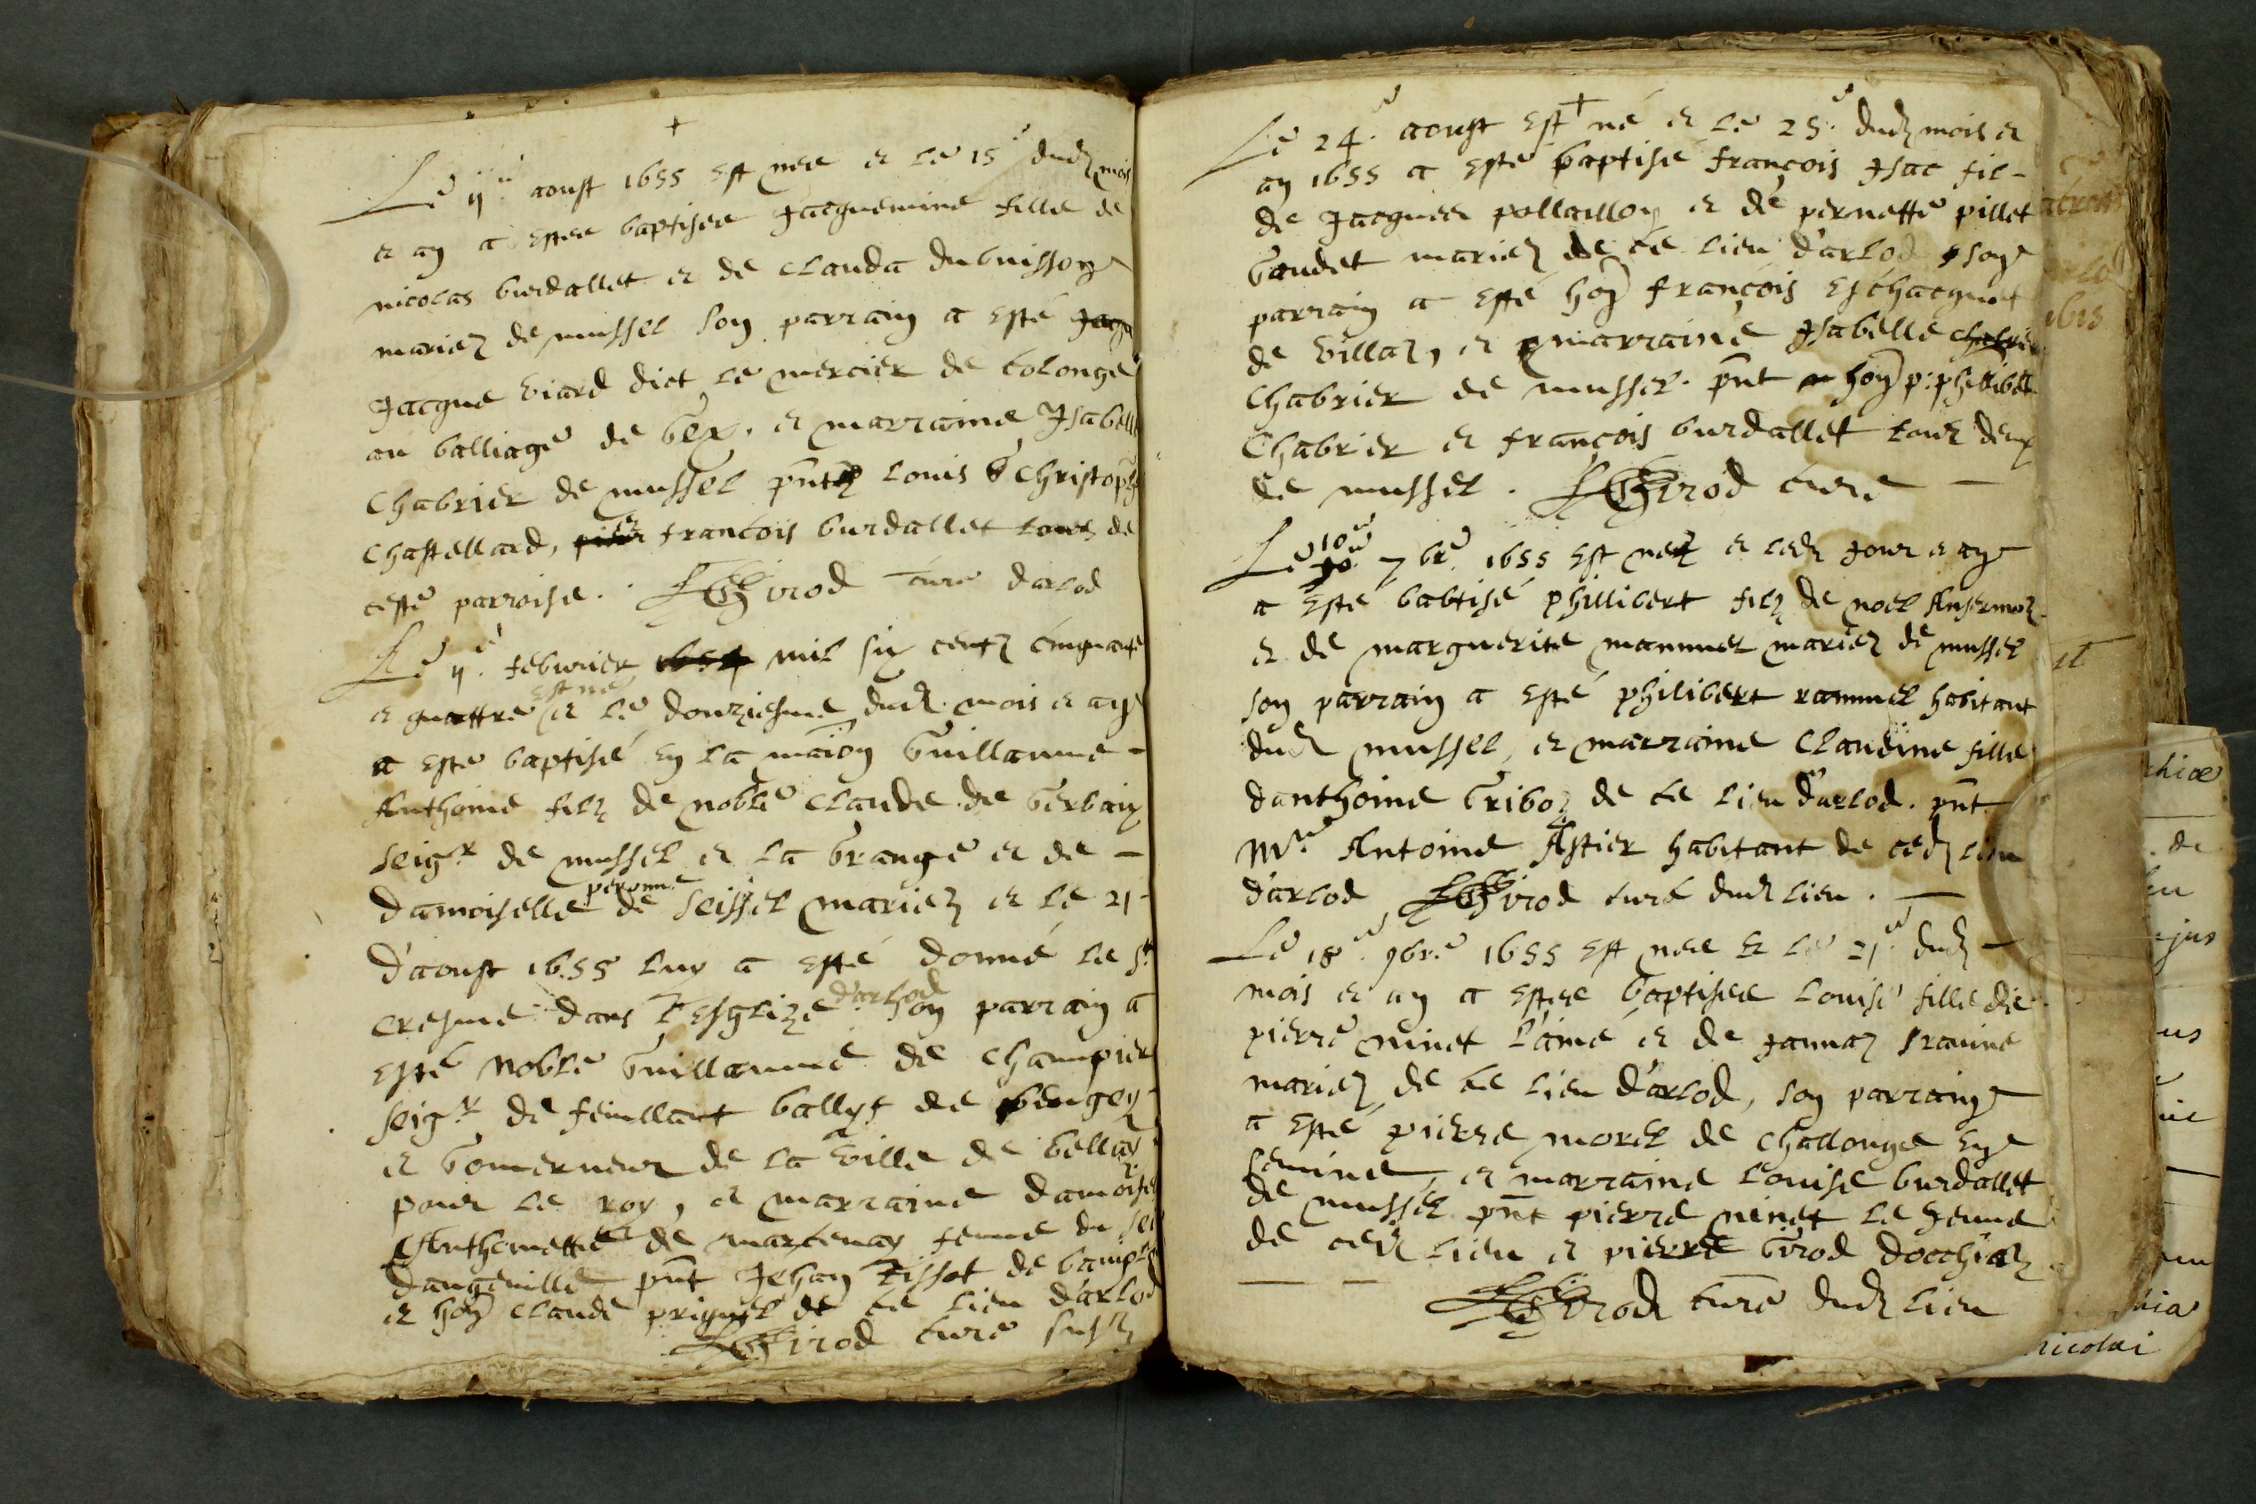 +
Le 11e aoust 1655 est nee et le 15e dud mois
et an a estee baptisee Jacquemine fille de
nicolas burdallet et de clauda dubuisson
mariez de mussel son parrain a esté
Jacque viard dict le mercier de colonge
au balliage de Gex. et marraine Isabelle
Chabrier de mussel pnt louis christophe
chastellard, et francois burdallet tous de
ceste parroise. Girod curé darlod
Le 11e febvrier mil six centz cinquate
et quattre est né et le douziesme dud mois et an
a esté baptisé en la maion Guillaume
Anthoine filz de noble claude de Gerbaix
seigr de mussel et la Grange et de
damoiselle peronne de seissel mariez et le 21
d'aoust 1655 luy a esté donné le st
cresme dans l'esglize d'arlod son parrain a
esté noble Guillaume de champier
seigr de feuillant ballyf de beugey
et Gouverneur de la ville de belley
pour le roy, et marraine
Anthoinette de femme du
dangeville pnt Jehan Tissot de
et hon claude de ce lieu d'arlod
Girod curé susd
+
Le 24e aoust est né et le 25e dud mois et
an 1655 a esté baptisé françois Isac fil
de Jacques pollaillon et de pernette pillet
Goudet mariez de ce lieu d'arlod son
parrain a esté hon françois Eschacquet
de villaz, et marraine Isabelle
Chabrier de mussel. pnt hon p: phillibert
Chabrier et françois burdallet tous deux
de mussel. Girod curé
Le 10e 7bre 1655 est nez et led jour et an
a esté babtisé phillibert filz de noel Ansermoz
et de marguerite mammel mariez de mussel
son parrain a esté philibert rammel habitant
dud mussel, et marraine claudine fille
danthoine Griboz de ce lieu d'arlod. pnt
Mre Antoine Astier habitant de ced lieu
d'arlod Girod curé dud lieu.
Le 18e 9bre 1655 est nee et le 21e dud
mois et an a estee baptisee louise fille de
pierre ninet l'ainé et de Jannaz
mariez de ce lieu d'arlod, son parrain
a esté pierre morel de challonge en
semine, et marraine louise burdallet
de mussel pnt pierre ninet le Jeune
de ced lieu et pierre Girod docchiaz
Girod curé dud lieu
nicolai